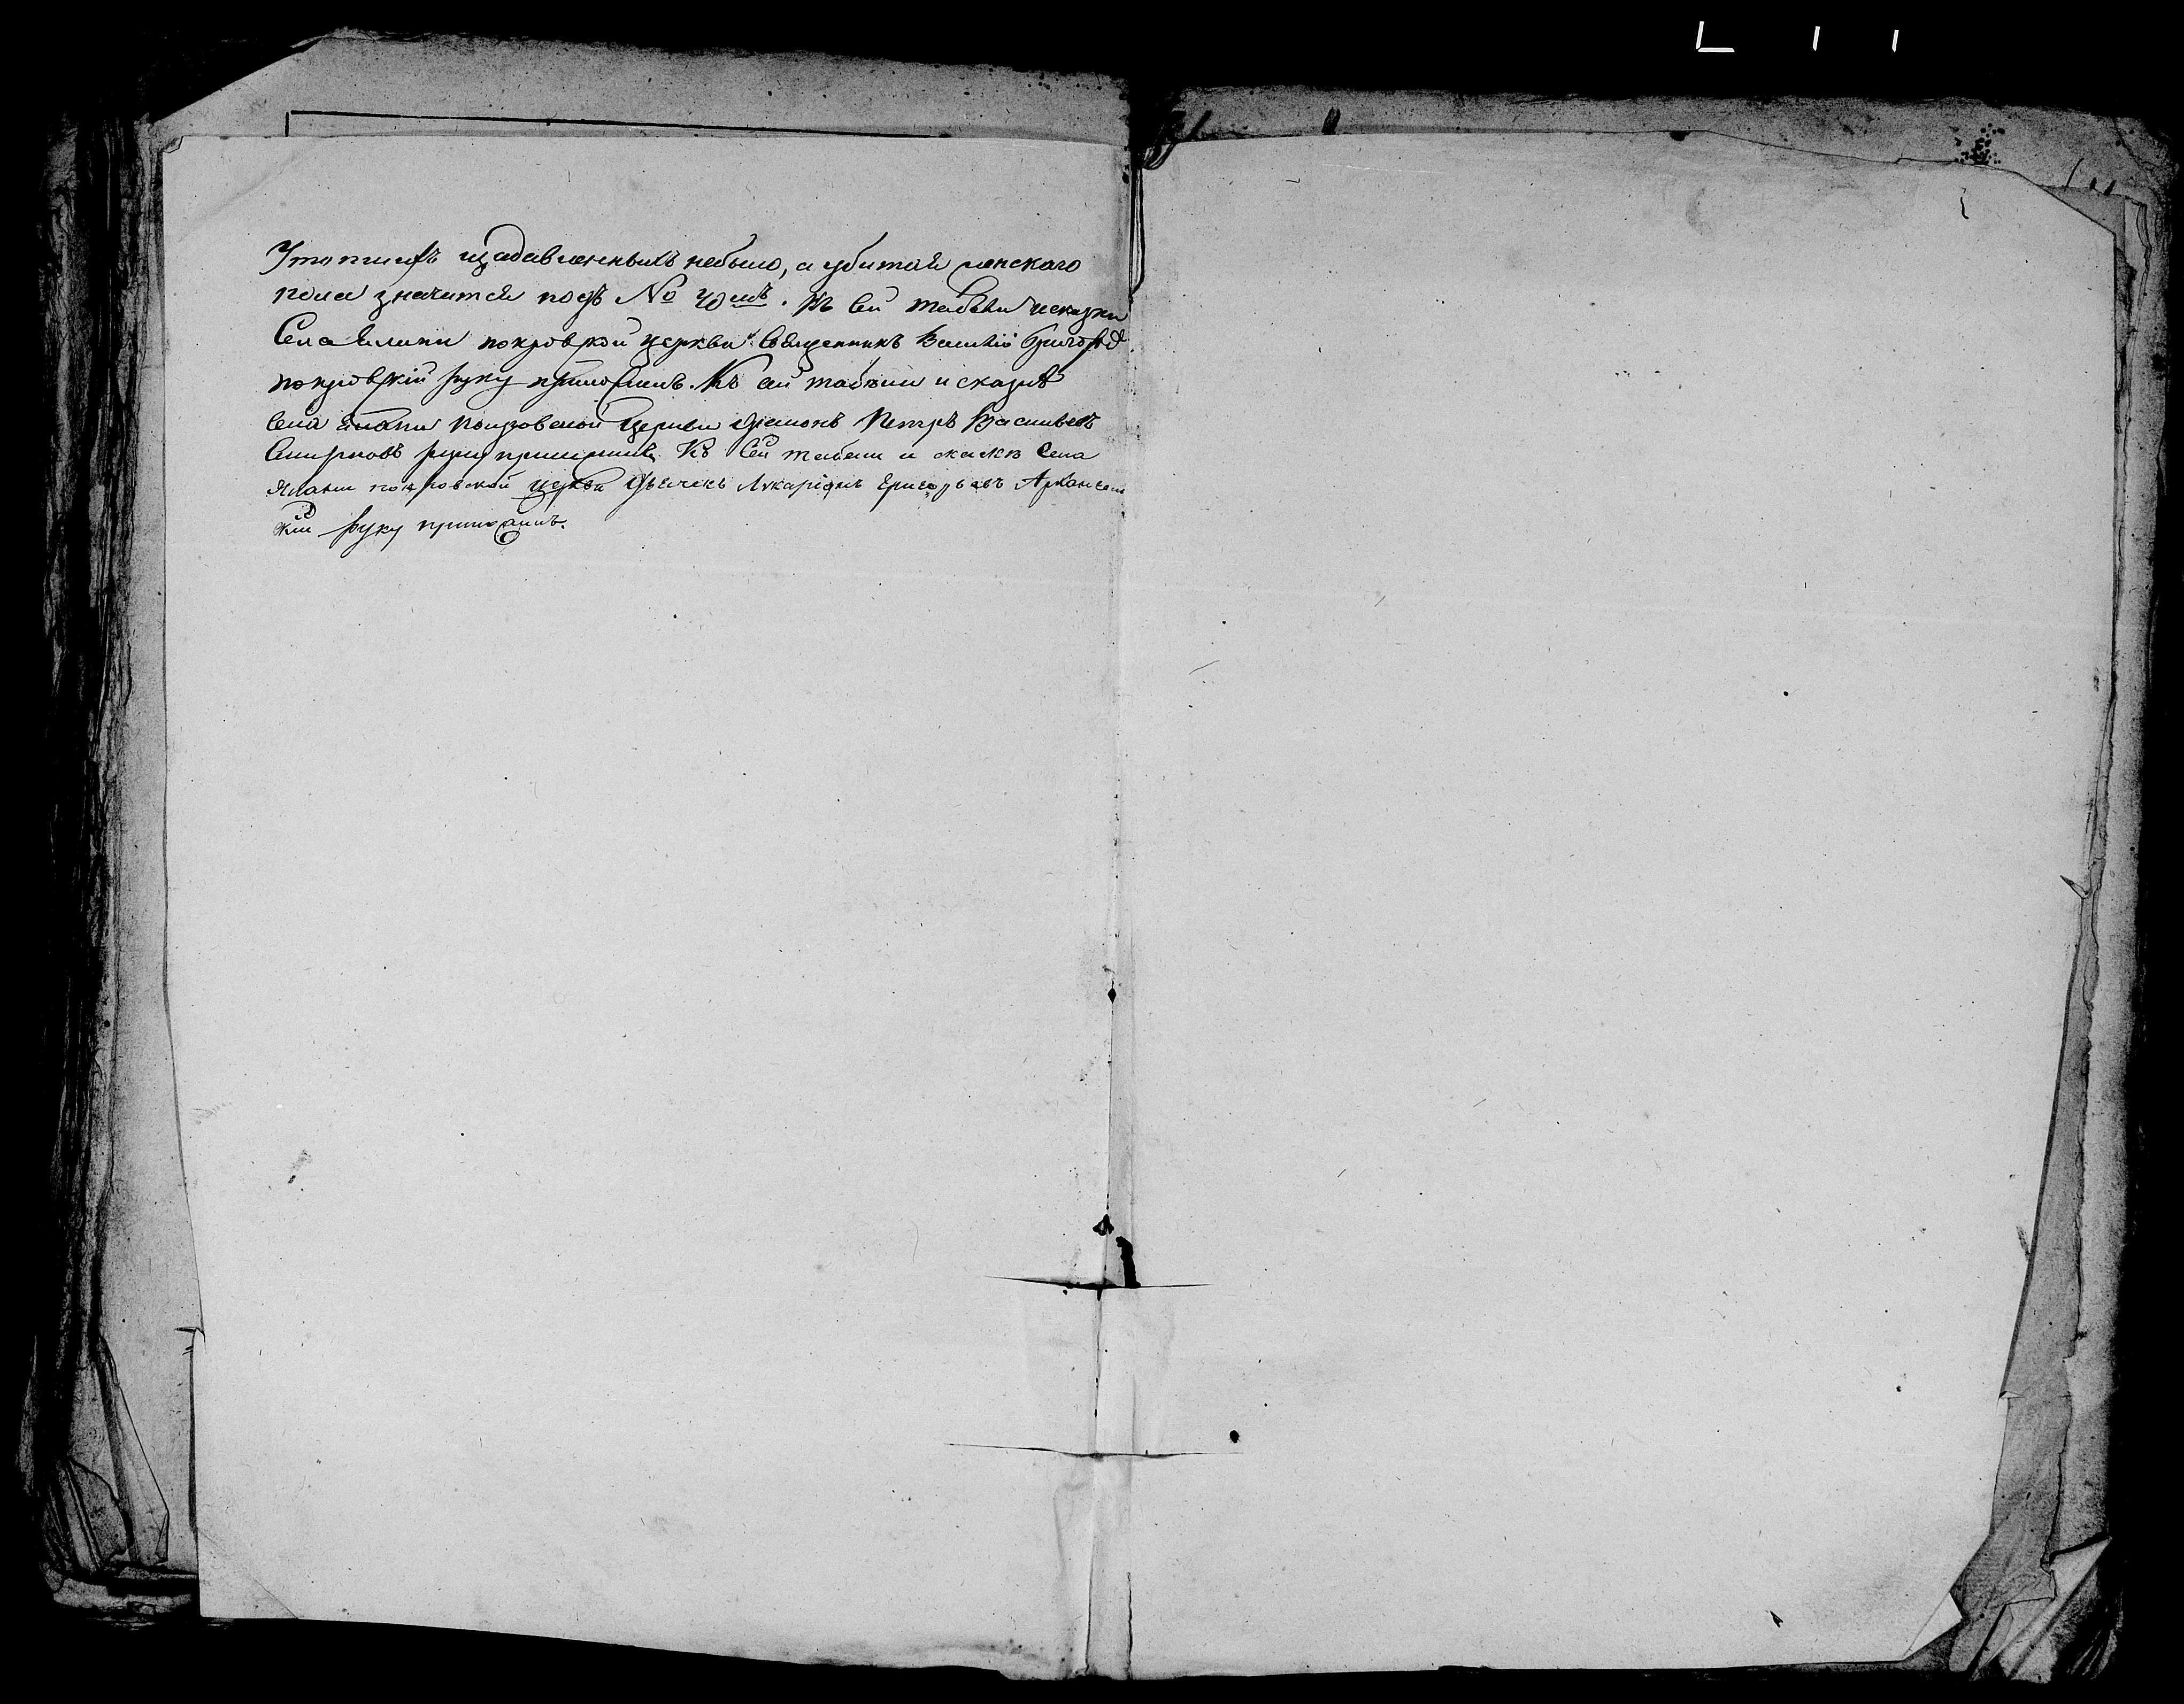 Утопшихъ изадавленныхъ небыло, а убитая женскаго
пола значится подъ № 40мъ. Къ сей табели исказки
Села Елани покровской церкви Священникъ Василій Григорьевъ
покровскій руку приложилъ. Къ сей табели и сказкѣ
села Елани Покровской Церкви Діаконъ Петръ Васильевъ
Смирновъ руку приложилъ Къ Сей табели и сказкѣ Села
Яланы покровской церкви Дьячекъ Григорьевъ Архангель
скій руку приложилъ.